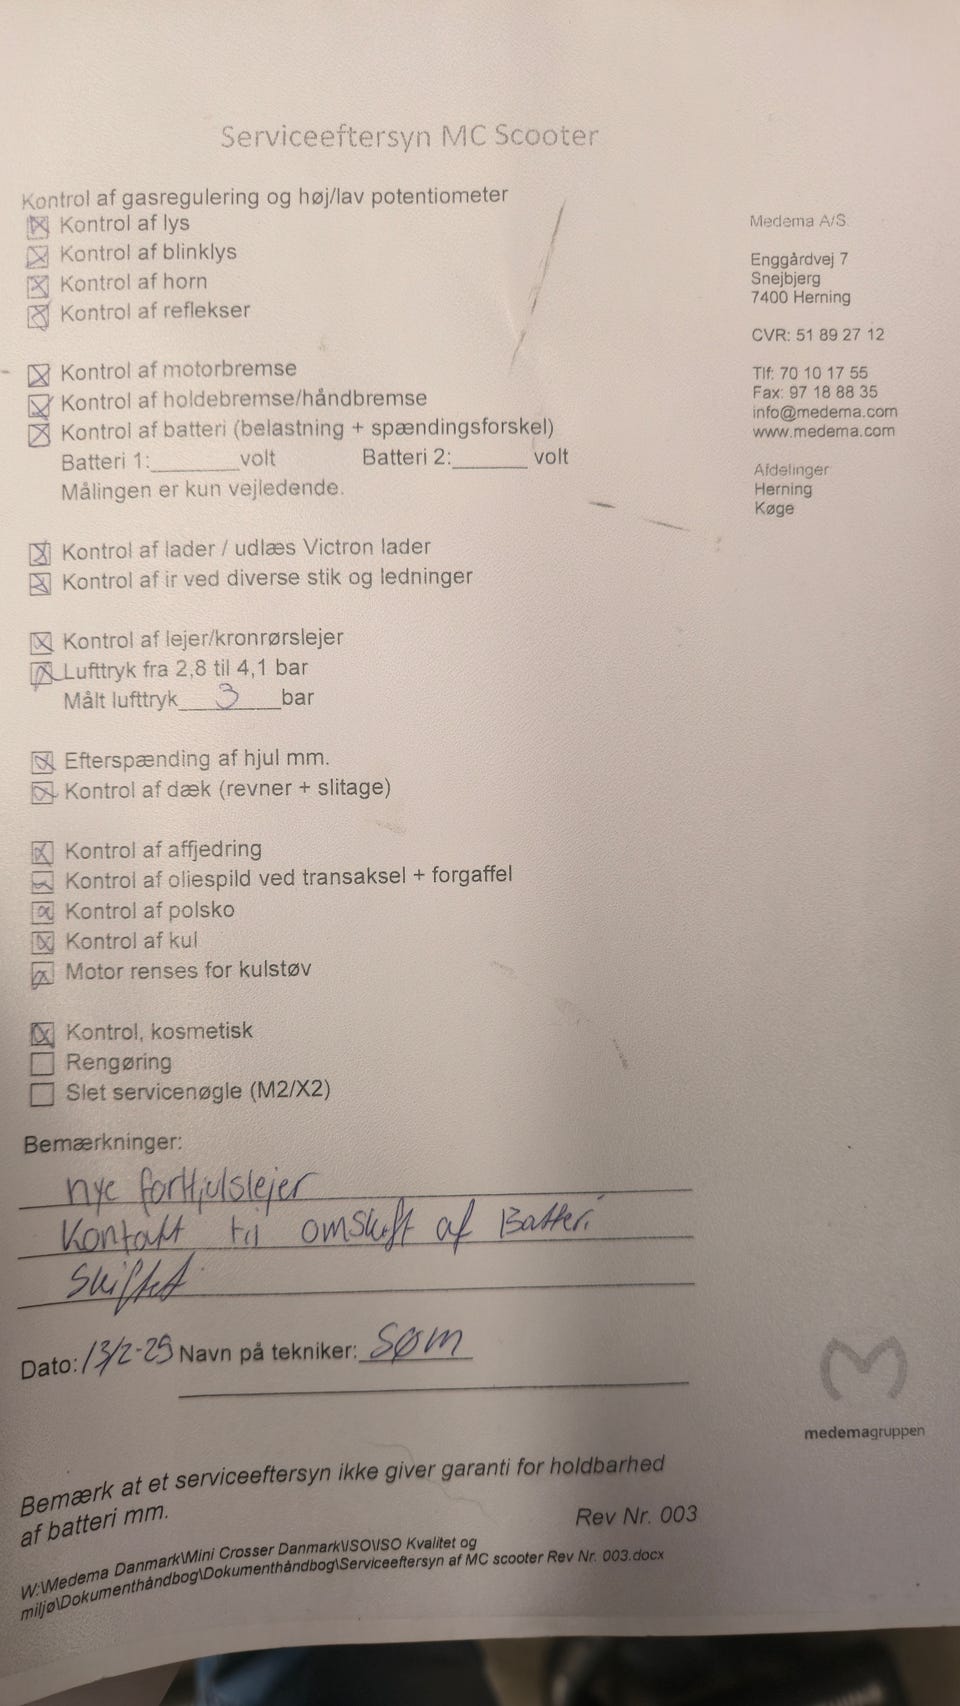 Serviceeftersyn MC Scooter
Kontrol af gasregulering og høj/lav potentiometer
Kontrol af lys
Kontrol af blinklys
Kontrol af horn
Kontrol af reflekser
Kontrol af motorbremse
Kontrol af holdebremse/håndbremse
Kontrol af batteri (belastning + spændingsforskel)
Batteri 1:_______volt Batteri 2:______ volt
Målingen er kun vejledende.
Kontrol af lader / udlæs Victron lader
Kontrol af ir ved diverse stik og ledninger
Kontrol af lejer/kronrørslejer
Lufttryk fra 2,8 til 4,1 bar
Målt lufttryk 3 bar
Efterspænding af hjul mm.
Kontrol af dæk (revner + slitage)
Kontrol af affjedring
Kontrol af oliespild ved transaksel + forgaffel
Kontrol af polsko
Kontrol af kul
Motor renses for kulstøv
Kontrol, kosmetisk
Rengøring
Slet servicenøgle (M2/X2)
Bemærkninger:
nye forhjulslejer
Kontakt til omskift af Batteri
skiftet
Dato: 13/2-25 Navn på tekniker: Søm
Medema A/S
Enggårdvej 7
Snejbjerg
7400 Herning
CVR: 51 89 27 12
Tlf: 70 10 17 55
Fax: 97 18 88 35
info@medema.com
www.medema.com
Afdelinger
Herning
Køge
medemagruppen
Bemærk at et serviceeftersyn ikke giver garanti for holdbarhed
af batteri mm.
Rev Nr. 003
W:\Medema Danmark\Mini Crosser Danmark\ISO\ISO Kvalitet og
miljø\Dokumenthåndbog\Dokumenthåndbog\Serviceeftersyn af MC scooter Rev Nr. 003.docx